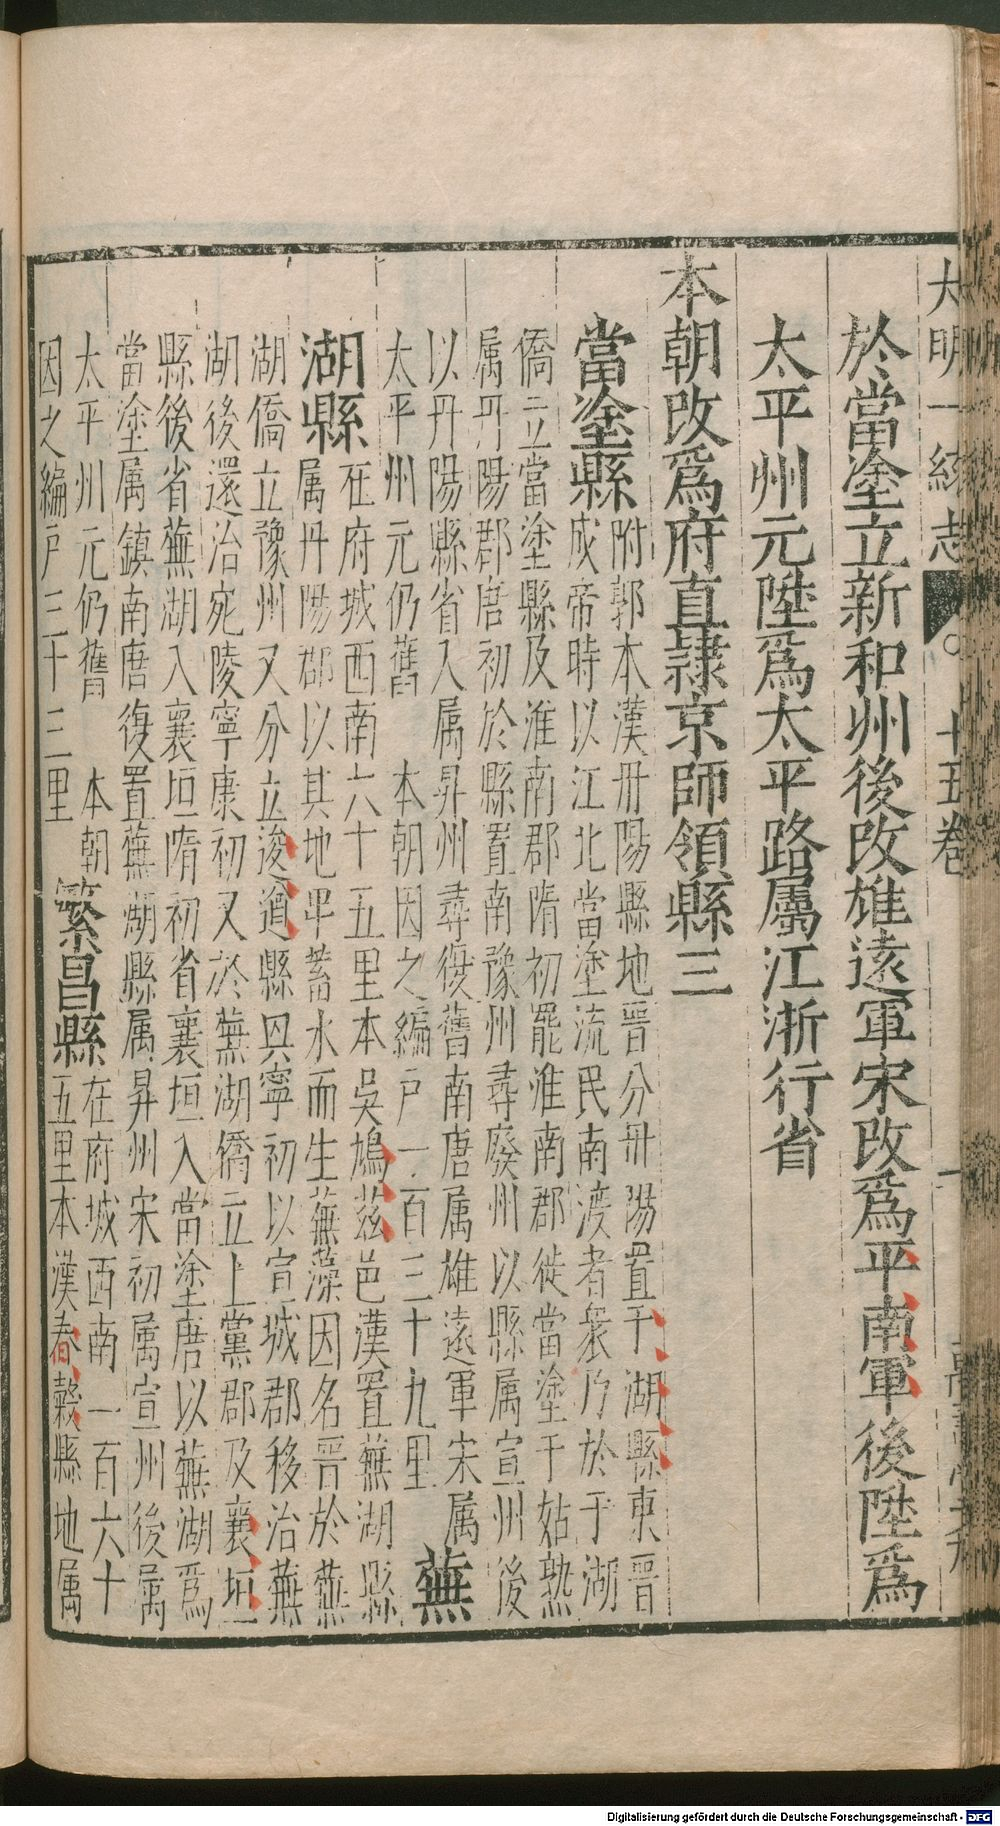 大明一統志 十五卷 一 萬壽堂刊
於當塗立新和州後改雄遠軍宋改爲平南軍後陞爲
太平州元陞爲太平路屬江浙行省
本朝改爲府直隸京師領縣三
當塗縣
附郭本漢丹陽縣地晉分丹陽置于湖縣東晉
成帝時以江北當塗流民南渡者衆乃於于湖
僑立當塗縣及淮南郡隋初罷淮南郡徙當塗于姑熟
属丹陽郡唐初於縣置南豫州尋廢州以縣属宣州後
以丹陽縣省入属昇州尋復舊南唐属雄遠軍宋属
太平州元仍舊 本朝因之編戶一百三十九里
蕪
湖縣
在府城西南六十五里本吳鳩茲邑漢置蕪湖縣
属丹陽郡以其地卑蓄水而生蕪藻因名晉於蕪
湖僑立豫州又分立逡遒縣咸寧初以宣城郡移治蕪
湖後還治宛陵寧康初又於蕪湖僑立上黨郡及襄垣
縣後省蕪湖入襄垣隋初省襄垣入當塗唐以蕪湖爲
當塗属鎮南唐復置蕪湖縣属昇州宋初属宣州後属
太平州元仍舊 本朝
因之編戶三十三里
繁昌縣
在府城西南一百六十
五里本漢春穀縣地属
Digitalisierung gefördert durch die Deutsche Forschungsgemeinschaft - DFG